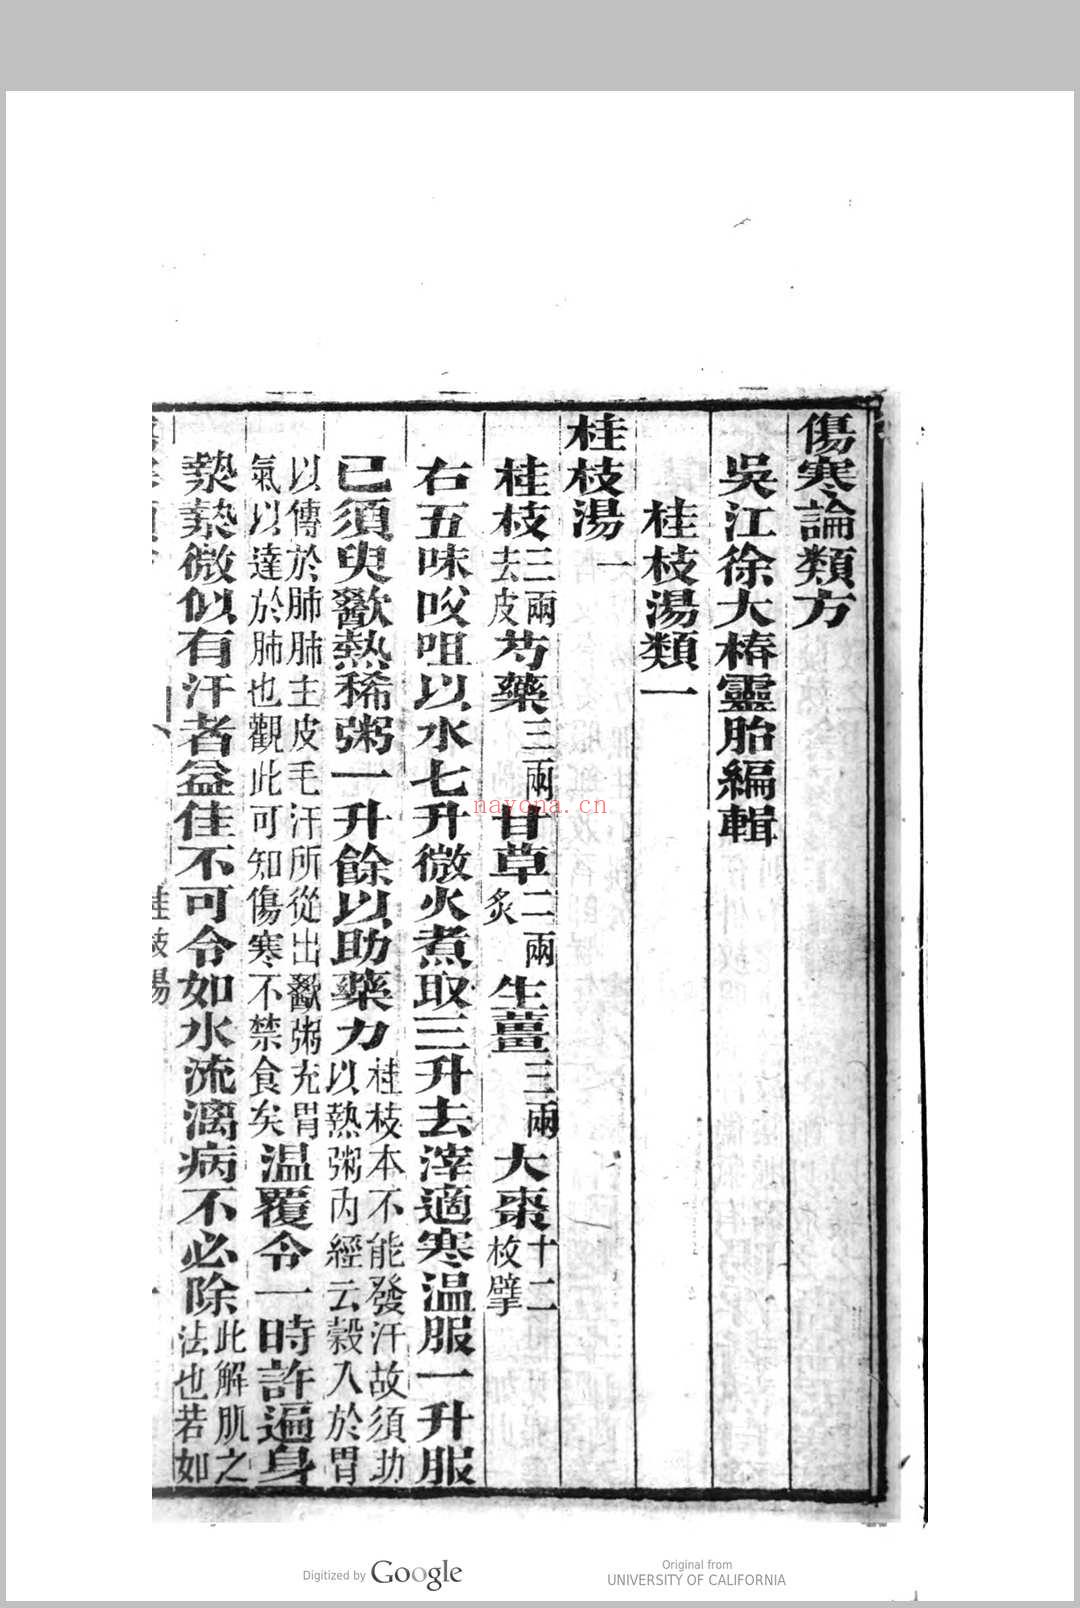 傷寒論類方
吳江徐大椿靈胎編輯
桂枝湯類一
桂枝湯一
桂枝三兩去皮芍藥三兩甘草二兩炙生薑三兩大棗十二枚擘
右五味㕮咀以水七升微火煮取三升去滓適寒温服一升服
已須臾歠熱稀粥一升餘以助藥力桂枝本不能發汗故須助以熱粥内經云穀入於胃
以傳於肺肺主皮毛汗所從出歠粥充胃氣以達於肺也觀此可知傷寒不禁食矣温覆令一時許遍身
漐漐微似有汗者益佳不可令如水流漓病不必除此解肌之法也若如
桂枝湯
nayona.cn
Digitized by Google
Original from
UNIVERSITY OF CALIFORNIA